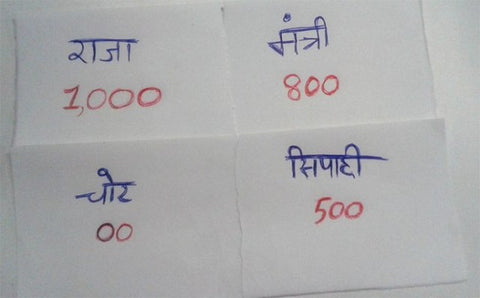 राजा
1,000
मंत्री
800
चोर
00
सिपाही
500